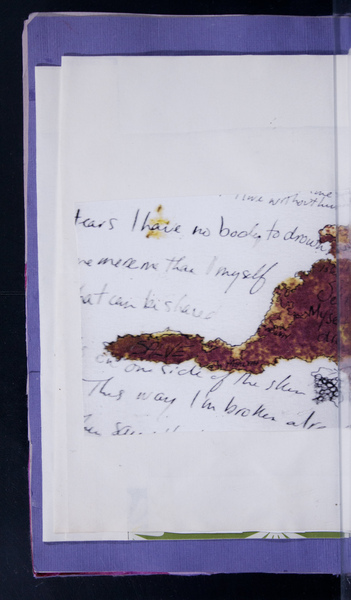 live without
tears I have no body to drown
me more me than I myself
hat can be shared
Myse
en one side of the skin
This way I'm broken alr